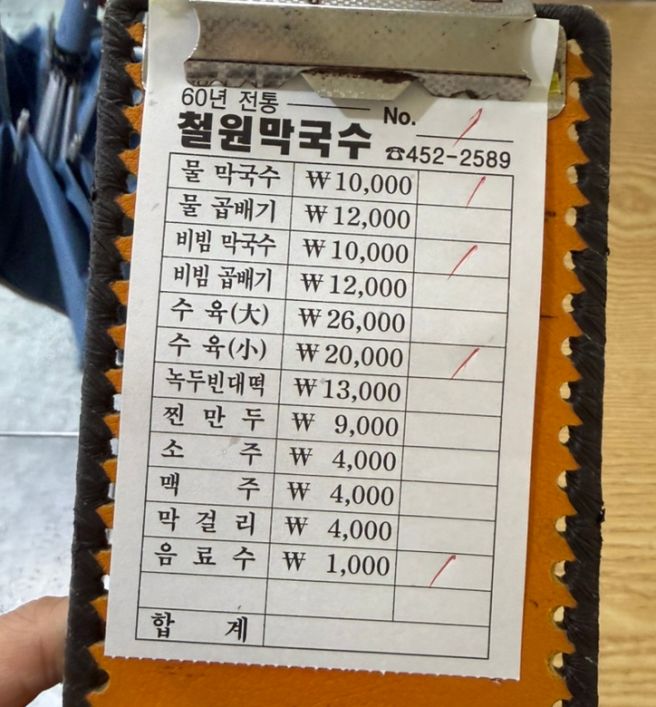 60년 전통
No. /
철원막국수 ☎452-2589
물 막국수 ₩10,000 /
물 곱배기 ₩12,000
비빔 막국수 ₩10,000 /
비빔 곱배기 ₩12,000
수 육(大) ₩26,000
수 육(小) ₩20,000 /
녹두빈대떡 ₩13,000
찐 만 두 ₩ 9,000
소 주 ₩ 4,000
맥 주 ₩ 4,000
막 걸 리 ₩ 4,000
음 료 수 ₩ 1,000 /
합 계